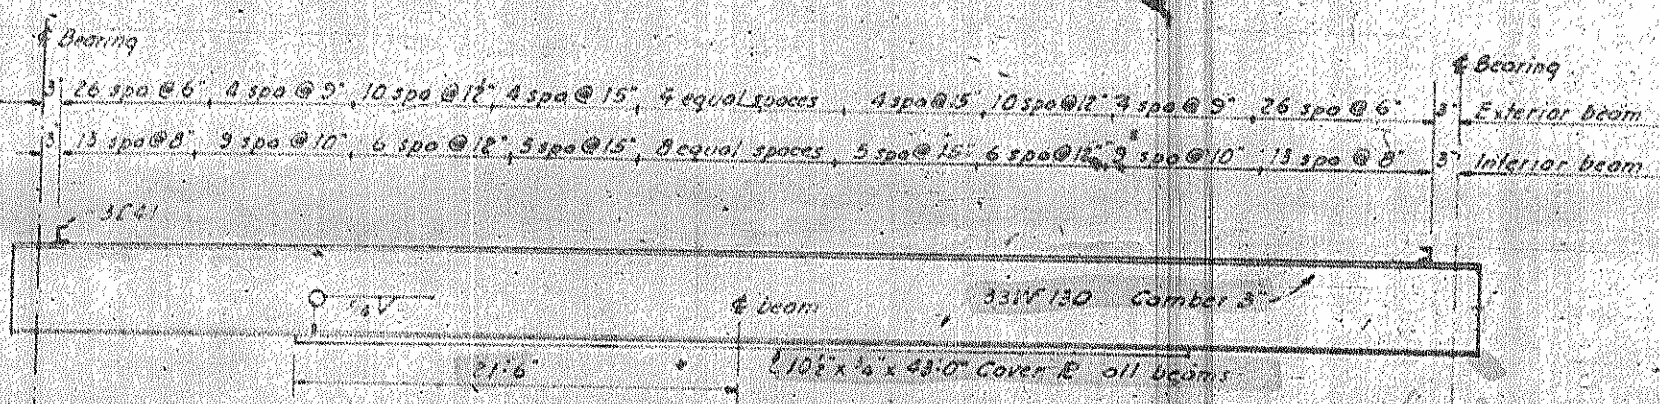 ℄ Bearing
℄ Bearing
3" 26 spa @ 6" 4 spa @ 9" 10 spa @ 12" 4 spa @ 15" 4 equal spaces 4 spa @ 15" 10 spa @ 12" 4 spa @ 9" 26 spa @ 6" 3" Exterior beam
3" 13 spa @ 8" 9 spa @ 10" 6 spa @ 12" 5 spa @ 15" 8 equal spaces 5 spa @ 15" 6 spa @ 12" 9 spa @ 10" 13 spa @ 8" 3" Interior beam
3C4.1
33WF130 Camber 3"
℄ beam
21'-6"
10½" x ¼" x 43'-0" Cover ℙ all beams